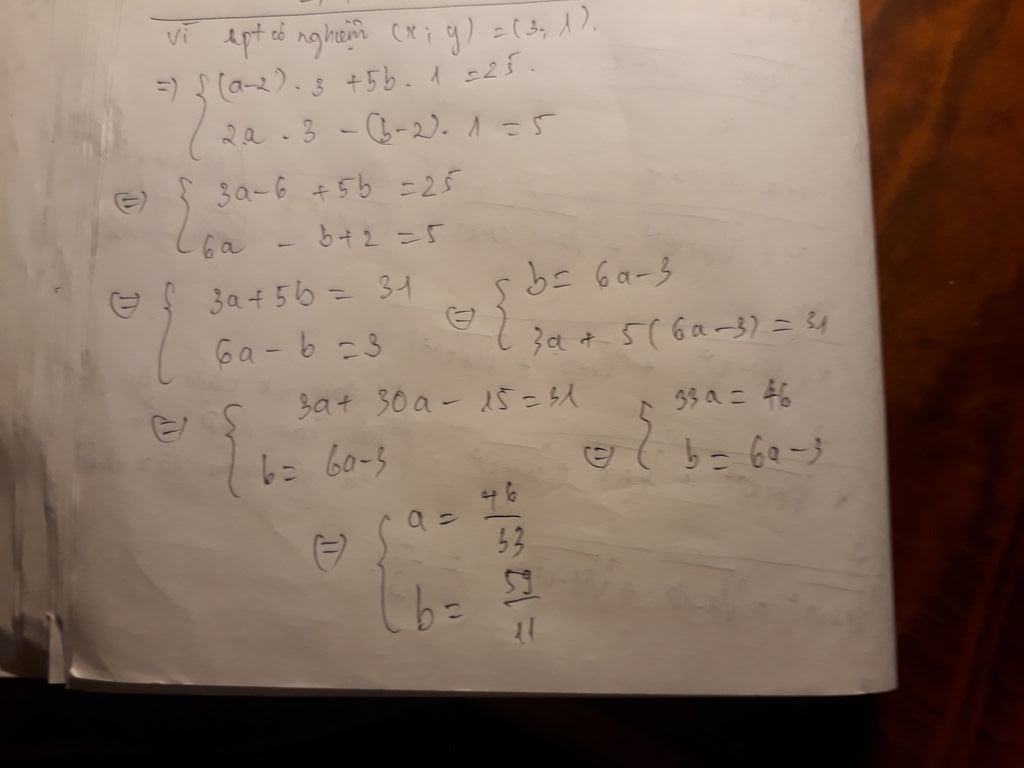 vì hpt có nghiệm (x; y) = (3; 1).
=> { (a-2) . 3 + 5b . 1 = 25.
2a . 3 - (b-2) . 1 = 5
<=> { 3a - 6 + 5b = 25
6a - b + 2 = 5
<=> { 3a + 5b = 31
6a - b = 3
<=> { b = 6a - 3
3a + 5(6a - 3) = 31
<=> { 3a + 30a - 15 = 31
b = 6a - 3
<=> { 33a = 46
b = 6a - 3
<=> { a = 46/33
b = 59/11